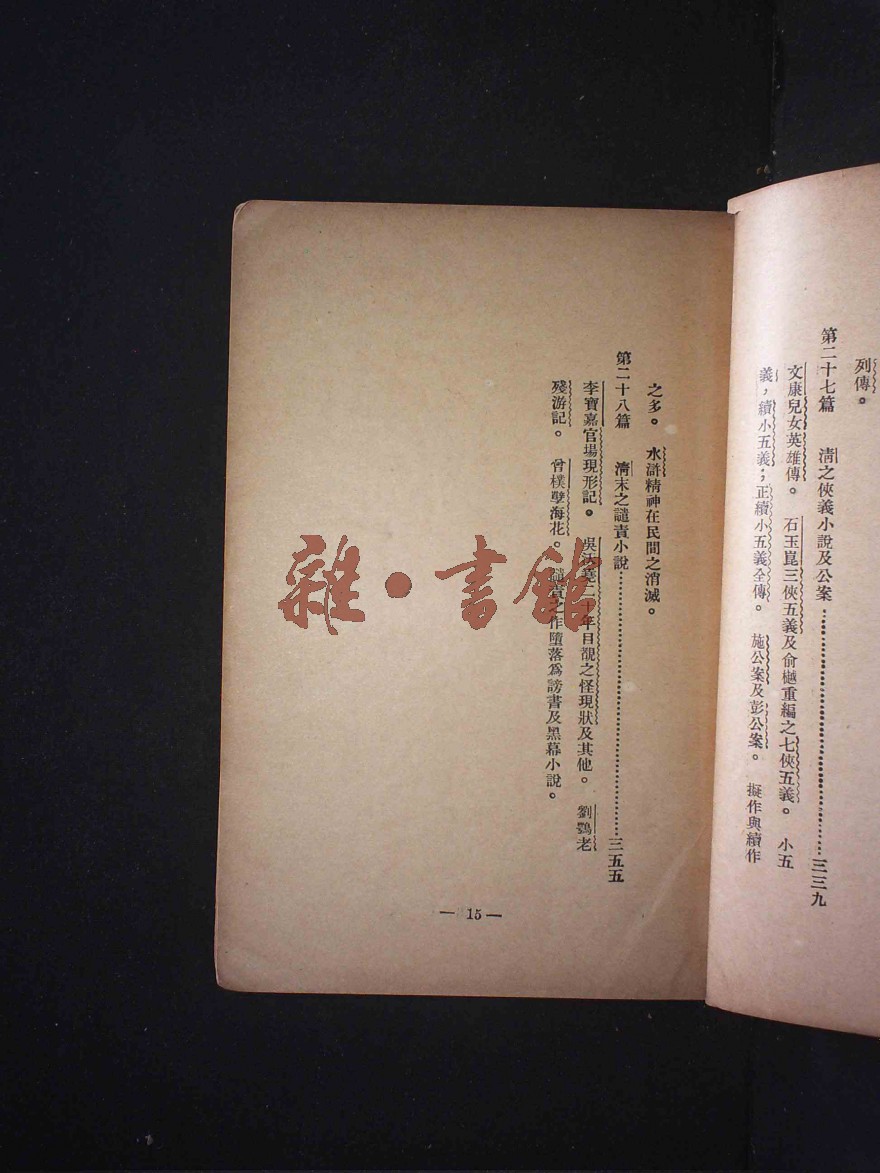 列傳。
第二十七篇　清之俠義小說及公案……三三九
文康兒女英雄傳。　石玉崑三俠五義及俞樾重編之七俠五義。　小五
義，續小五義；正續小五義全傳。　施公案及彭公案。　擬作與續作
之多。　水滸精神在民間之消滅。
第二十八篇　清末之譴責小說……三五五
李寶嘉官場現形記。　吳沃堯二十年目覩之怪現狀及其他。　劉鶚老
殘游記。　曾樸孽海花。　譴責之作墮落爲謗書及黑幕小說。
— 15 —
雜·書館